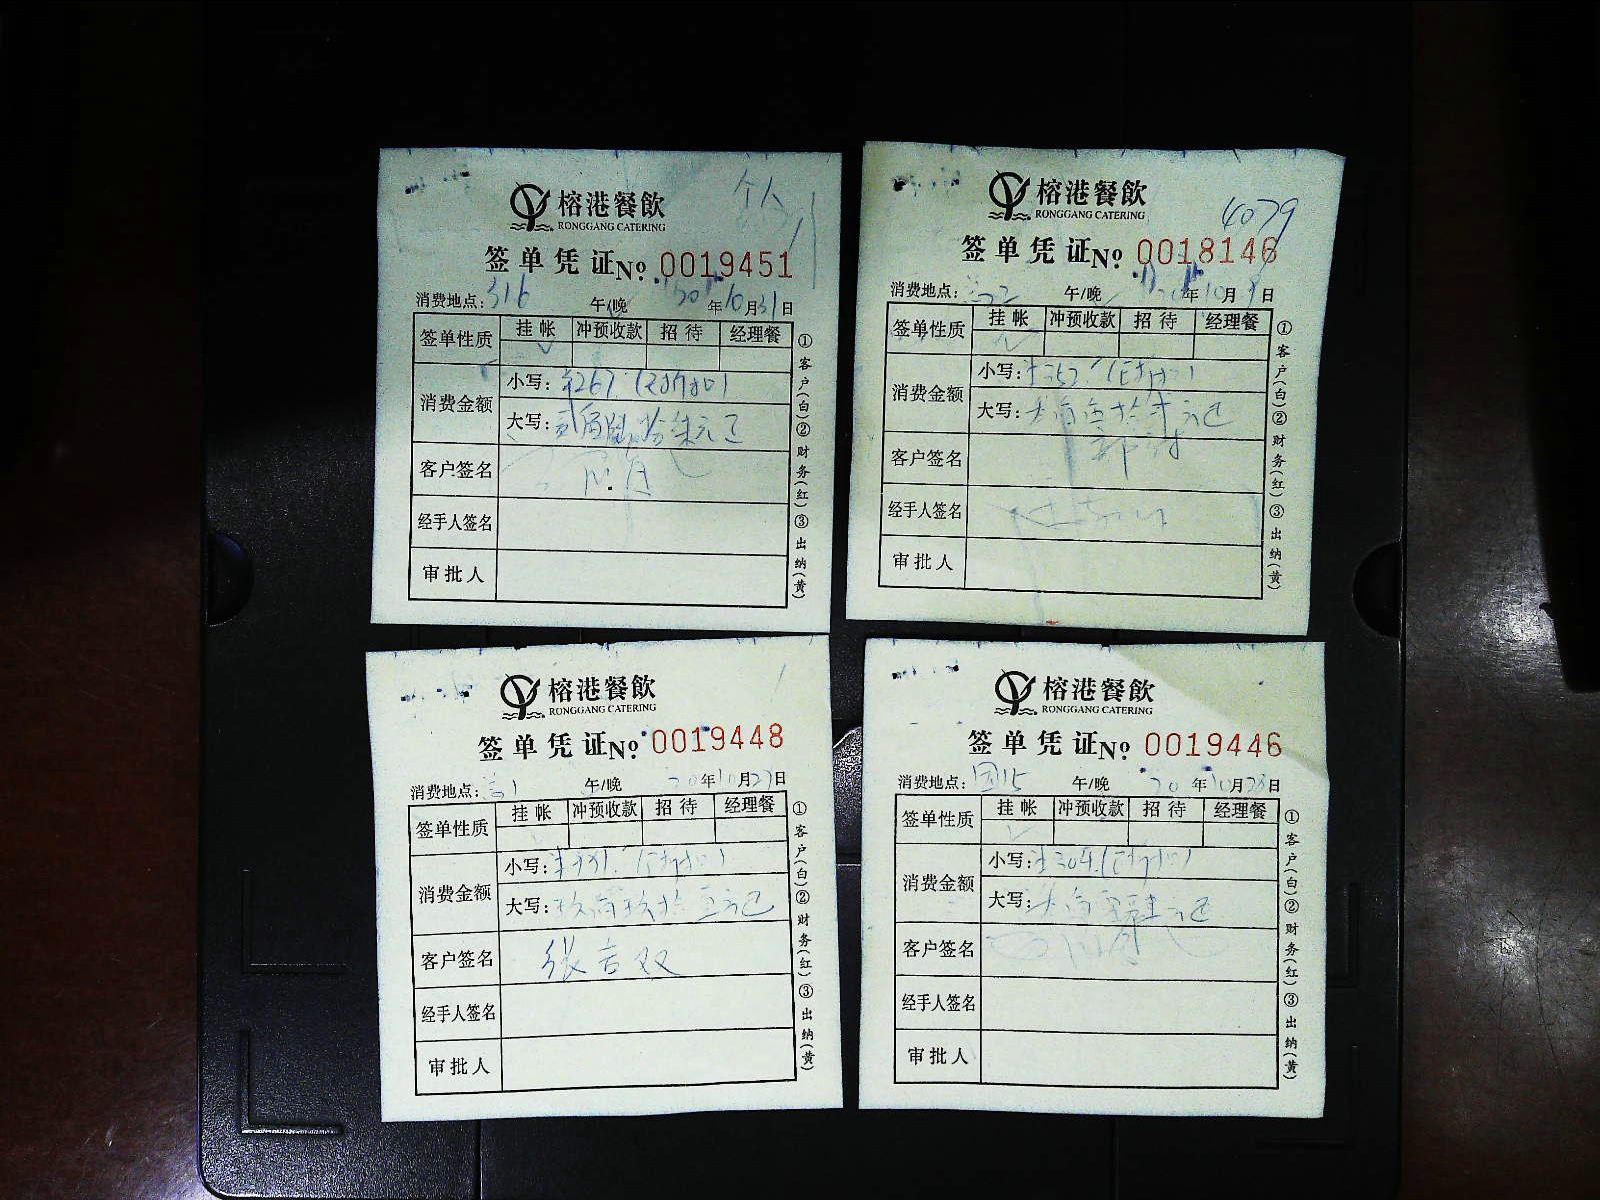 个人
榕港餐飲
RONGGANG CATERING
签单凭证No. 0019451
消费地点: 316 午/晚 20年10月31日
签单性质 挂帐 冲预收款 招待 经理餐
消费金额 小写: ¥267.
大写: 贰佰陆拾柒元正
客户签名
经手人签名
审批人
①客户(白)②财务(红)③出纳(黄)
4079
榕港餐飲
RONGGANG CATERING
签单凭证No. 0018146
消费地点: 午/晚 20年10月9日
签单性质 挂帐 冲预收款 招待 经理餐
消费金额 小写:
大写:
客户签名
经手人签名
审批人
①客户(白)②财务(红)③出纳(黄)
榕港餐飲
RONGGANG CATERING
签单凭证No. 0019448
消费地点: 午/晚 20年10月29日
签单性质 挂帐 冲预收款 招待 经理餐
消费金额 小写:
大写:
客户签名 张吉双
经手人签名
审批人
①客户(白)②财务(红)③出纳(黄)
榕港餐飲
RONGGANG CATERING
签单凭证No. 0019446
消费地点: 午/晚 20年10月28日
签单性质 挂帐 冲预收款 招待 经理餐
消费金额 小写:
大写:
客户签名
经手人签名
审批人
①客户(白)②财务(红)③出纳(黄)